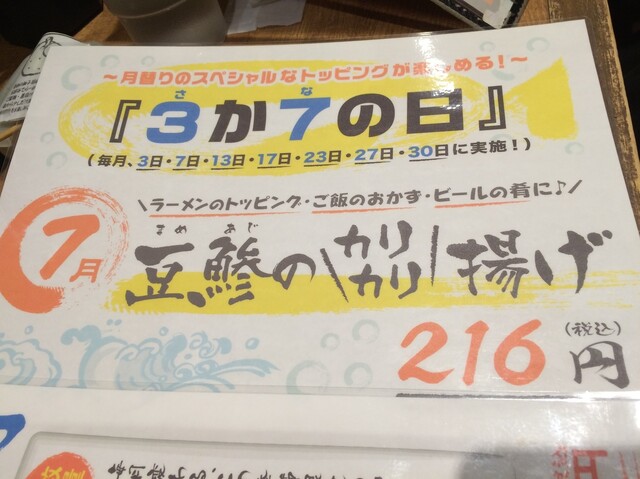 ～月替りのスペシャルなトッピングが楽しめる！～
さ な
『3か7の日』
(毎月、3日・7日・13日・17日・23日・27日・30日に実施！)
\ラーメンのトッピング・ご飯のおかず・ビールの肴に♪/
まめ あじ
7月 豆鯵の\カリカリ/揚げ
216円(税込)